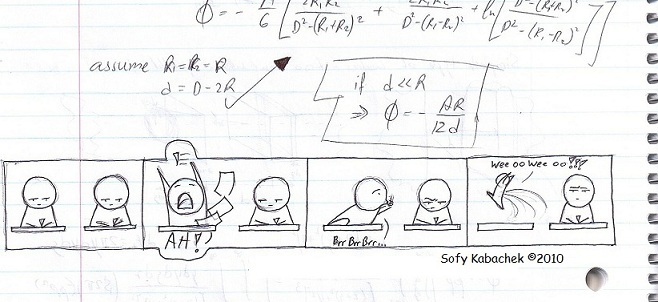 ϕ = - [ 2R₁R₂ / D²-(R₁+R₂)² + 2R₁R₂ / D²-(R₁-R₂)² + ln [ D²-(R₁+R₂)² / D²-(R₁-R₂)² ] ]
6
assume R₁=R₂=R
d = D-2R
if d<<R
⇒ ϕ = - AR / 12d
AH!
Brr Brr Brr...
Wee oo Wee oo!!!
Sofy Kabachek ©2010